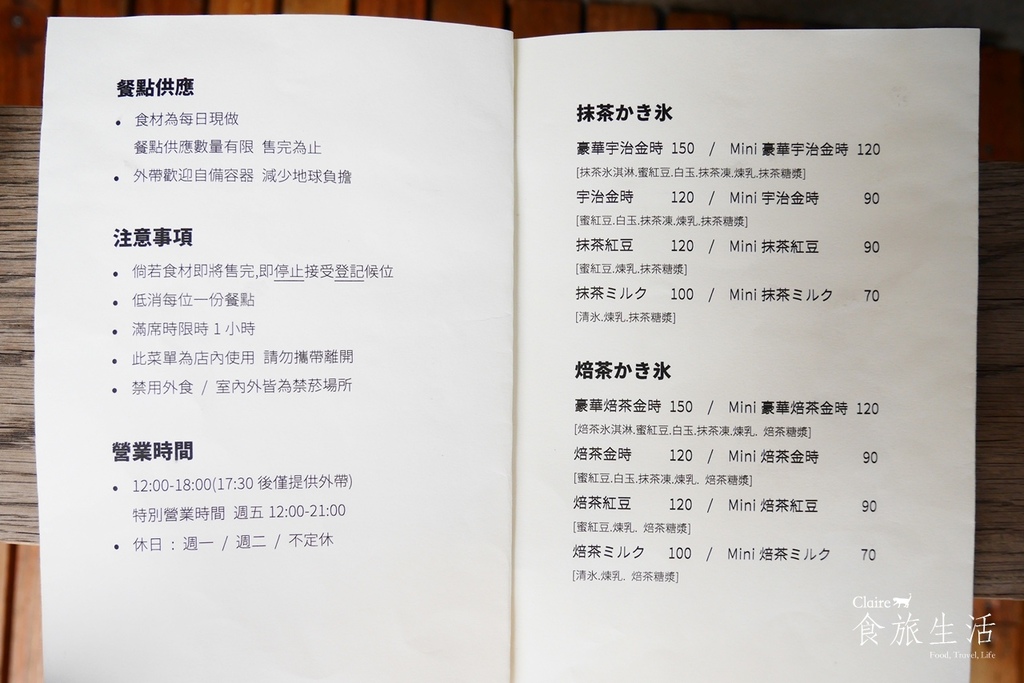 餐點供應
• 食材為每日現做
餐點供應數量有限 售完為止
• 外帶歡迎自備容器 減少地球負擔
注意事項
• 倘若食材即將售完,即停止接受登記候位
• 低消每位一份餐點
• 滿席時限時 1 小時
• 此菜單為店內使用 請勿攜帶離開
• 禁用外食 / 室內外皆為禁菸場所
營業時間
• 12:00-18:00(17:30 後僅提供外帶)
特別營業時間 週五 12:00-21:00
• 休日 : 週一 / 週二 / 不定休
抹茶かき氷
豪華宇治金時 150 / Mini 豪華宇治金時 120
[抹茶氷淇淋.蜜紅豆.白玉.抹茶凍.煉乳.抹茶糖漿]
宇治金時 120 / Mini 宇治金時 90
[蜜紅豆.白玉.抹茶凍.煉乳.抹茶糖漿]
抹茶紅豆 120 / Mini 抹茶紅豆 90
[蜜紅豆.煉乳.抹茶糖漿]
抹茶ミルク 100 / Mini 抹茶ミルク 70
[清氷.煉乳.抹茶糖漿]
焙茶かき氷
豪華焙茶金時 150 / Mini 豪華焙茶金時 120
[焙茶氷淇淋.蜜紅豆.白玉.抹茶凍.煉乳. 焙茶糖漿]
焙茶金時 120 / Mini 焙茶金時 90
[蜜紅豆.白玉.抹茶凍.煉乳. 焙茶糖漿]
焙茶紅豆 120 / Mini 焙茶紅豆 90
[蜜紅豆.煉乳. 焙茶糖漿]
焙茶ミルク 100 / Mini 焙茶ミルク 70
[清氷.煉乳. 焙茶糖漿]
Claire
食旅生活
Food, Travel, Life